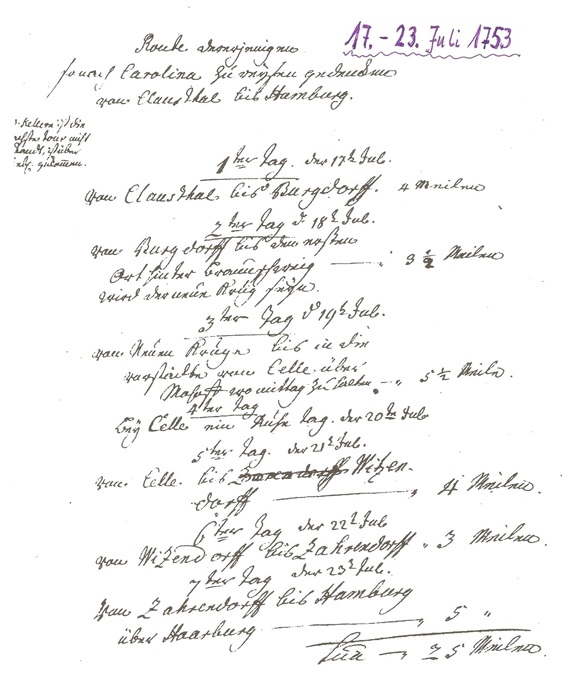 17. - 23. Juli 1753
Route derenjenigen
so nach Carolina zu reysen gedencken
von Clausthal bis Hamburg.
1ter Tag. der 17t Jul.
von Clausthal bis Burgdorff. 4 Meilen
2ter Tag d 18t Jul.
von Burgdorff bis den ersten
Ort hinter Braunschweig — 3 1/2 Meilen
wird der neue Krug seyn.
3ter Tag d 19t Jul.
von Neuen Kruge bis in die
vorstädte von Celle über
wo mittag zu halten — 5 1/2 Meile.
4ter Tag
bey Celle ein Ruhe tag. der 20te Jul.
5ter Tag. der 21t Jul.
von Celle bis Witzen-
dorff — 4 Meilen.
6ter Tag der 22t Jul
von Witzendorff bis Zahrendorff " 3 Meilen.
7ter Tag der 23t Jul.
Von Zahrendorff bis Hamburg
über Haarburg — " 5 "
Sua — 25 Meilen